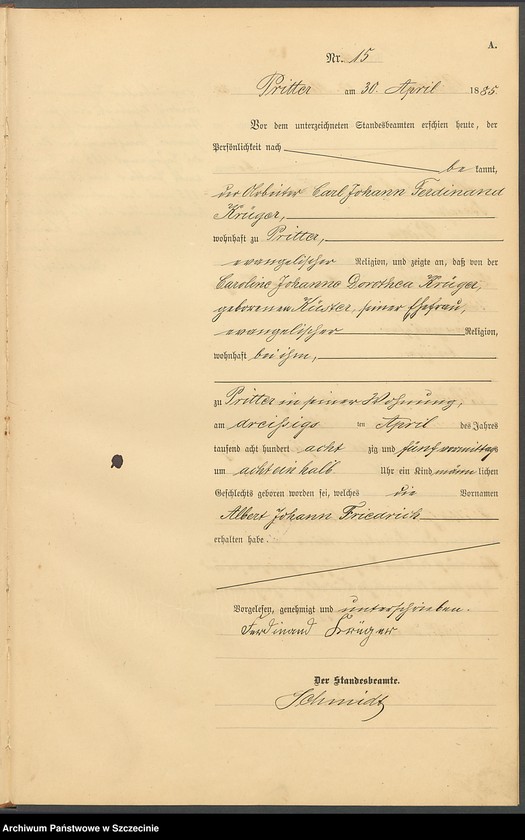 A.
Nr. 15
Pritter am 30. April 1885
Vor dem unterzeichneten Standesbeamten erschien heute, der
Persönlichkeit nach
be kannt,
der Arbeiter Carl Johann Ferdinand
Krüger,
wohnhaft zu Pritter,
evangelischer Religion, und zeigte an, daß von der
Caroline Johanne Dorothea Krüger,
geborenen Küster, seiner Ehefrau,
evangelischer Religion,
wohnhaft bei ihm,
zu Pritter in seiner Wohnung,
am dreißigs ten April des Jahres
tausend acht hundert acht zig und fünf vormittags
um acht ein halb Uhr ein Kind männ lichen
Geschlechts geboren worden sei, welches die Vornamen
Albert Johann Friedrich
erhalten habe.
Vorgelesen, genehmigt und unterschrieben.
Ferdinand Krüger
Der Standesbeamte.
Schmidt
Archiwum Państwowe w Szczecinie